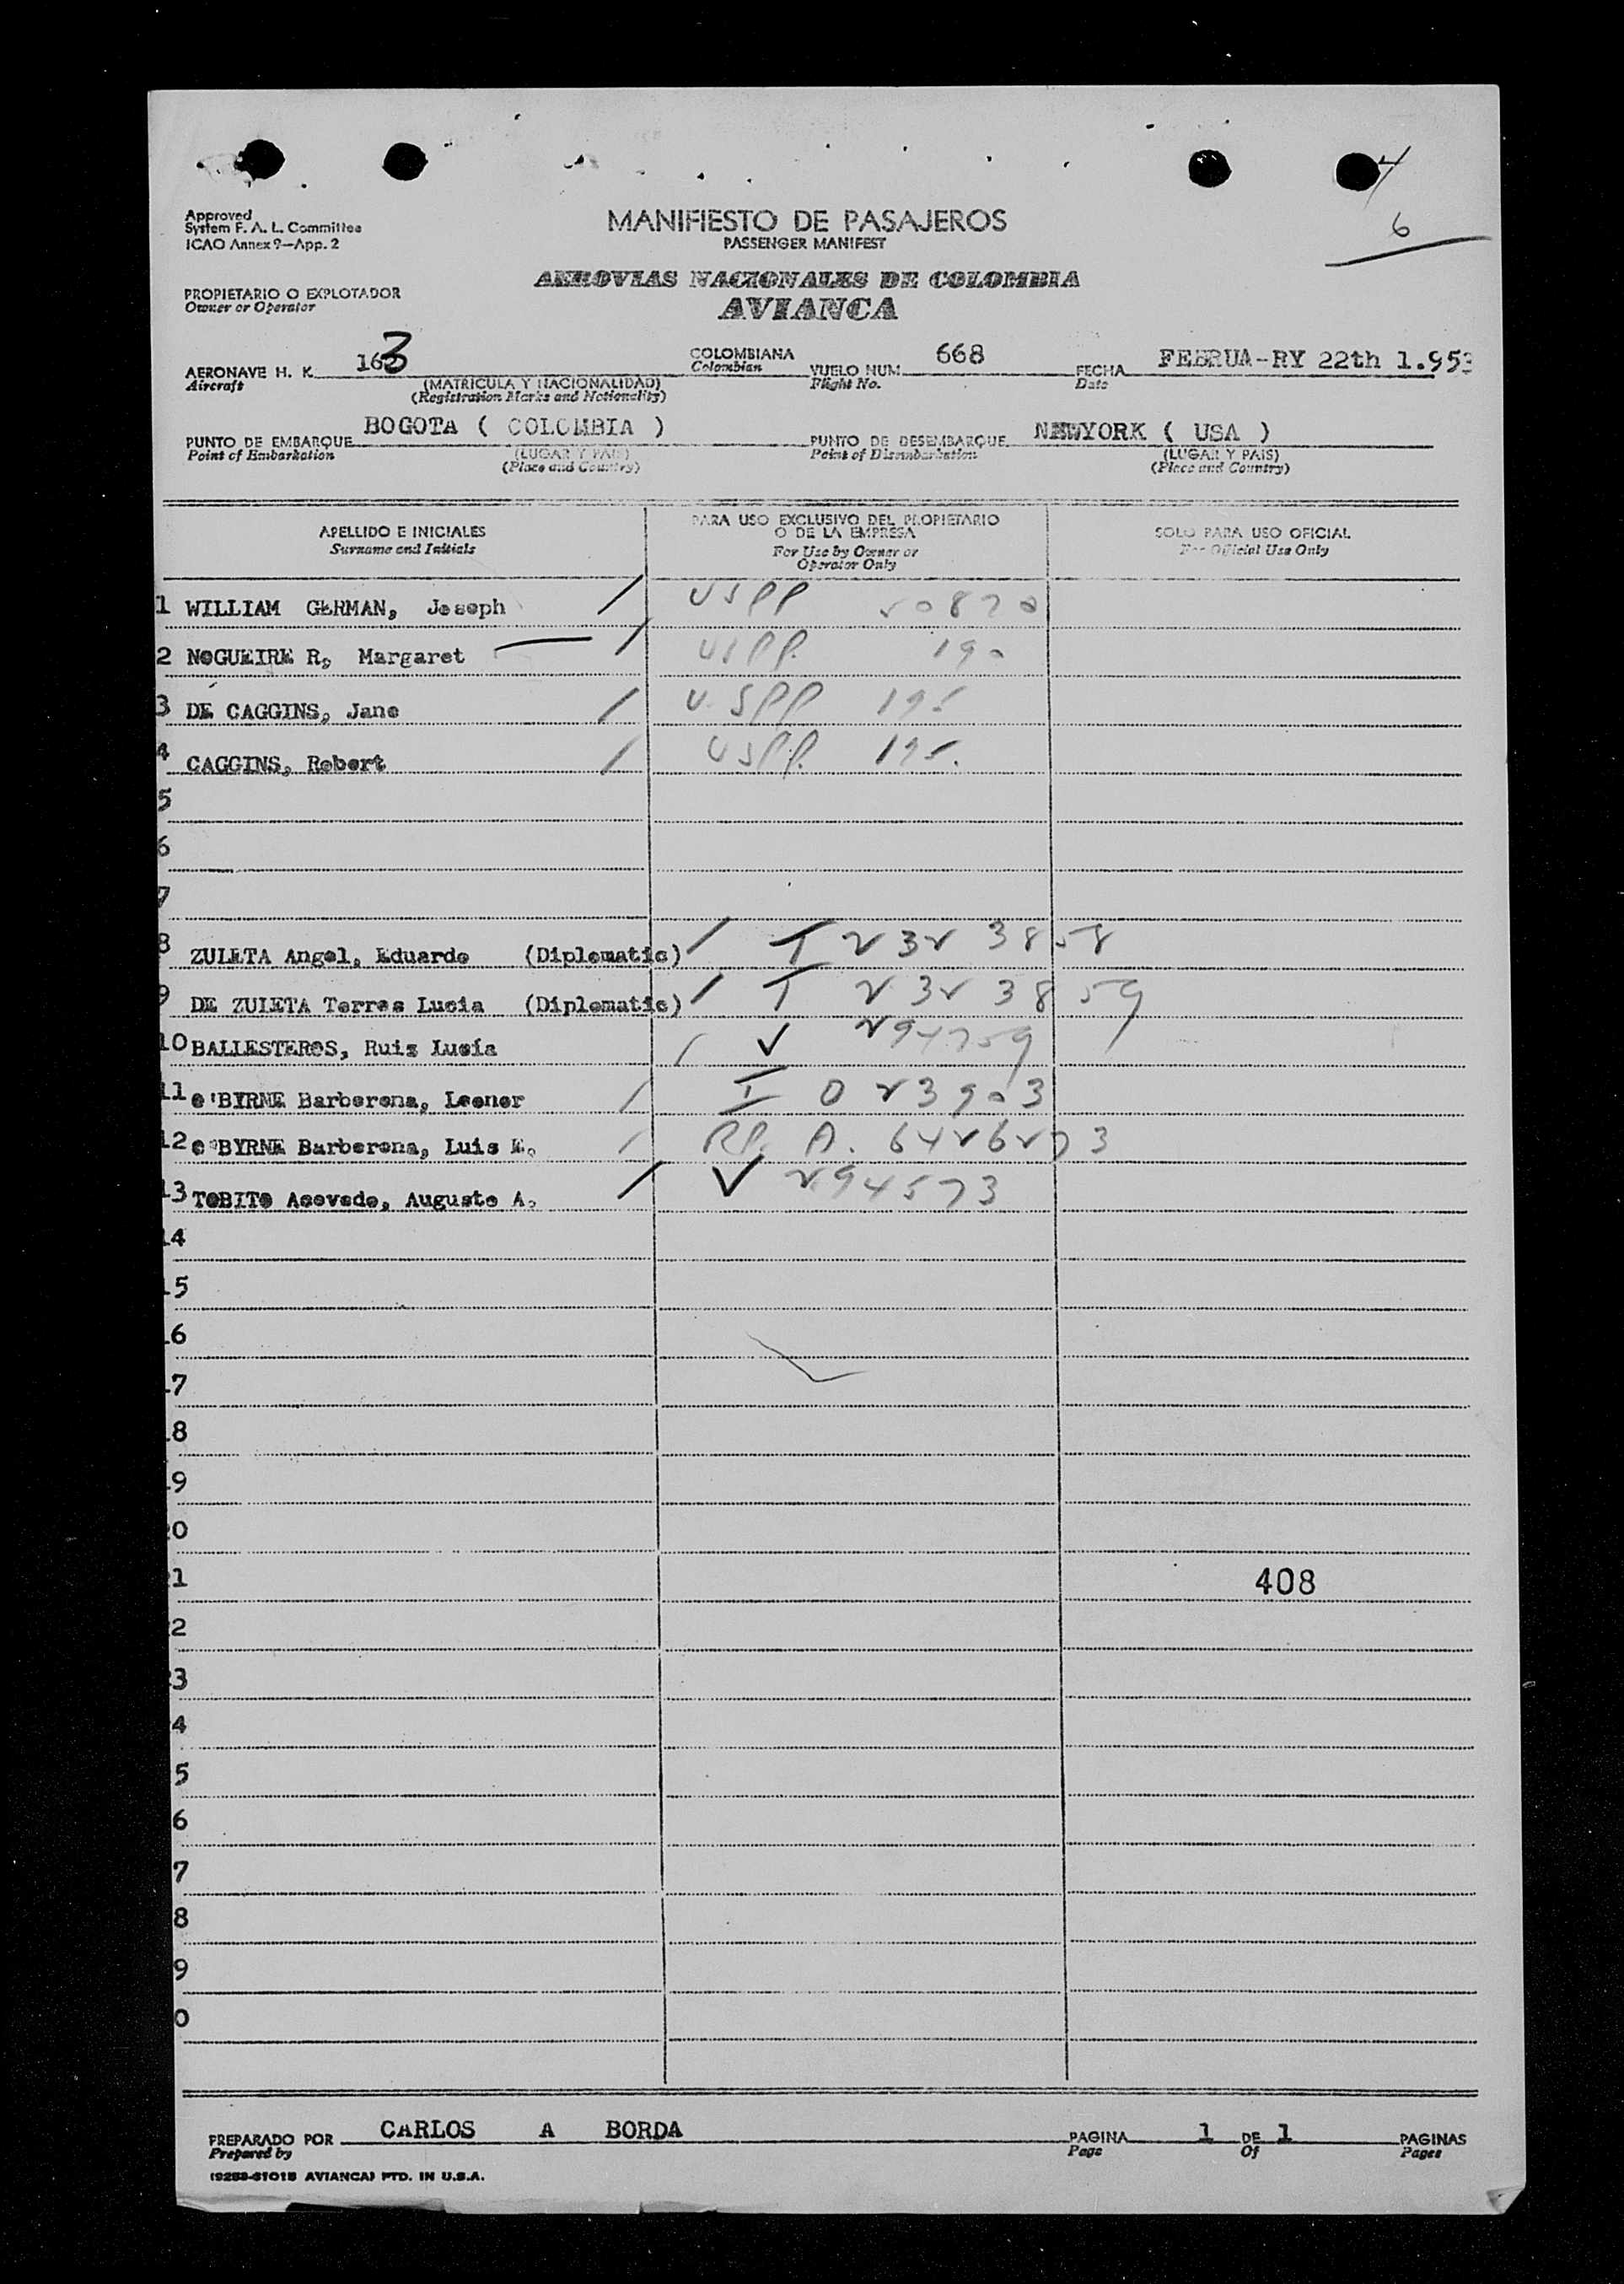 4
6
Approved
System F. A. L. Committee
ICAO Annex 9—App. 2
MANIFIESTO DE PASAJEROS
PASSENGER MANIFEST
AEROVIAS NACIONALES DE COLOMBIA
AVIANCA
PROPIETARIO O EXPLOTADOR
Owner or Operator
AERONAVE H. K. 163 COLOMBIANA VUELO NUM. 668 FECHA FEBRUA-RY 22th 1.953
Aircraft (MATRICULA Y NACIONALIDAD) Colombian Flight No. Date
(Registration Marks and Nationality)
PUNTO DE EMBARQUE BOGOTA ( COLOMBIA ) PUNTO DE DESEMBARQUE NEWYORK ( USA )
Point of Embarkation (LUGAR Y PAIS) Point of Disembarkation (LUGAR Y PAIS)
(Place and Country) (Place and Country)
APELLIDO E INICIALES PARA USO EXCLUSIVO DEL PROPIETARIO SOLO PARA USO OFICIAL
Surname and Initials O DE LA EMPRESA For Official Use Only
For Use by Owner or
Operator Only
1 WILLIAM GERMAN, Joseph USPP 50870
2 NOGUEIRE R, Margaret USPP. 190
3 DE CAGGINS, Jane U.SPP 195
4 CAGGINS, Robert USPP. 195.
5
6
7
8 ZULETA Angel, Eduardo (Diplomatic) T 232 3858
9 DE ZULETA Torres Lucia (Diplomatic) T 232 3859
10 BALLESTEROS, Ruiz Lucía V 294759
11 o'BYRNE Barberena, Leonor I 023903
12 o'BYRNE Barberena, Luis E. RP. A. 6426273
13 TOBITO Acevedo, Augusto A. V 294573
14
15
16
17
18
19
20
1 408
2
3
4
5
6
7
8
9
0
PREPARADO POR CARLOS A BORDA PAGINA 1 DE 1 PAGINAS
Prepared by Page Of Pages
(9253-6101B AVIANCA) PTD. IN U.S.A.